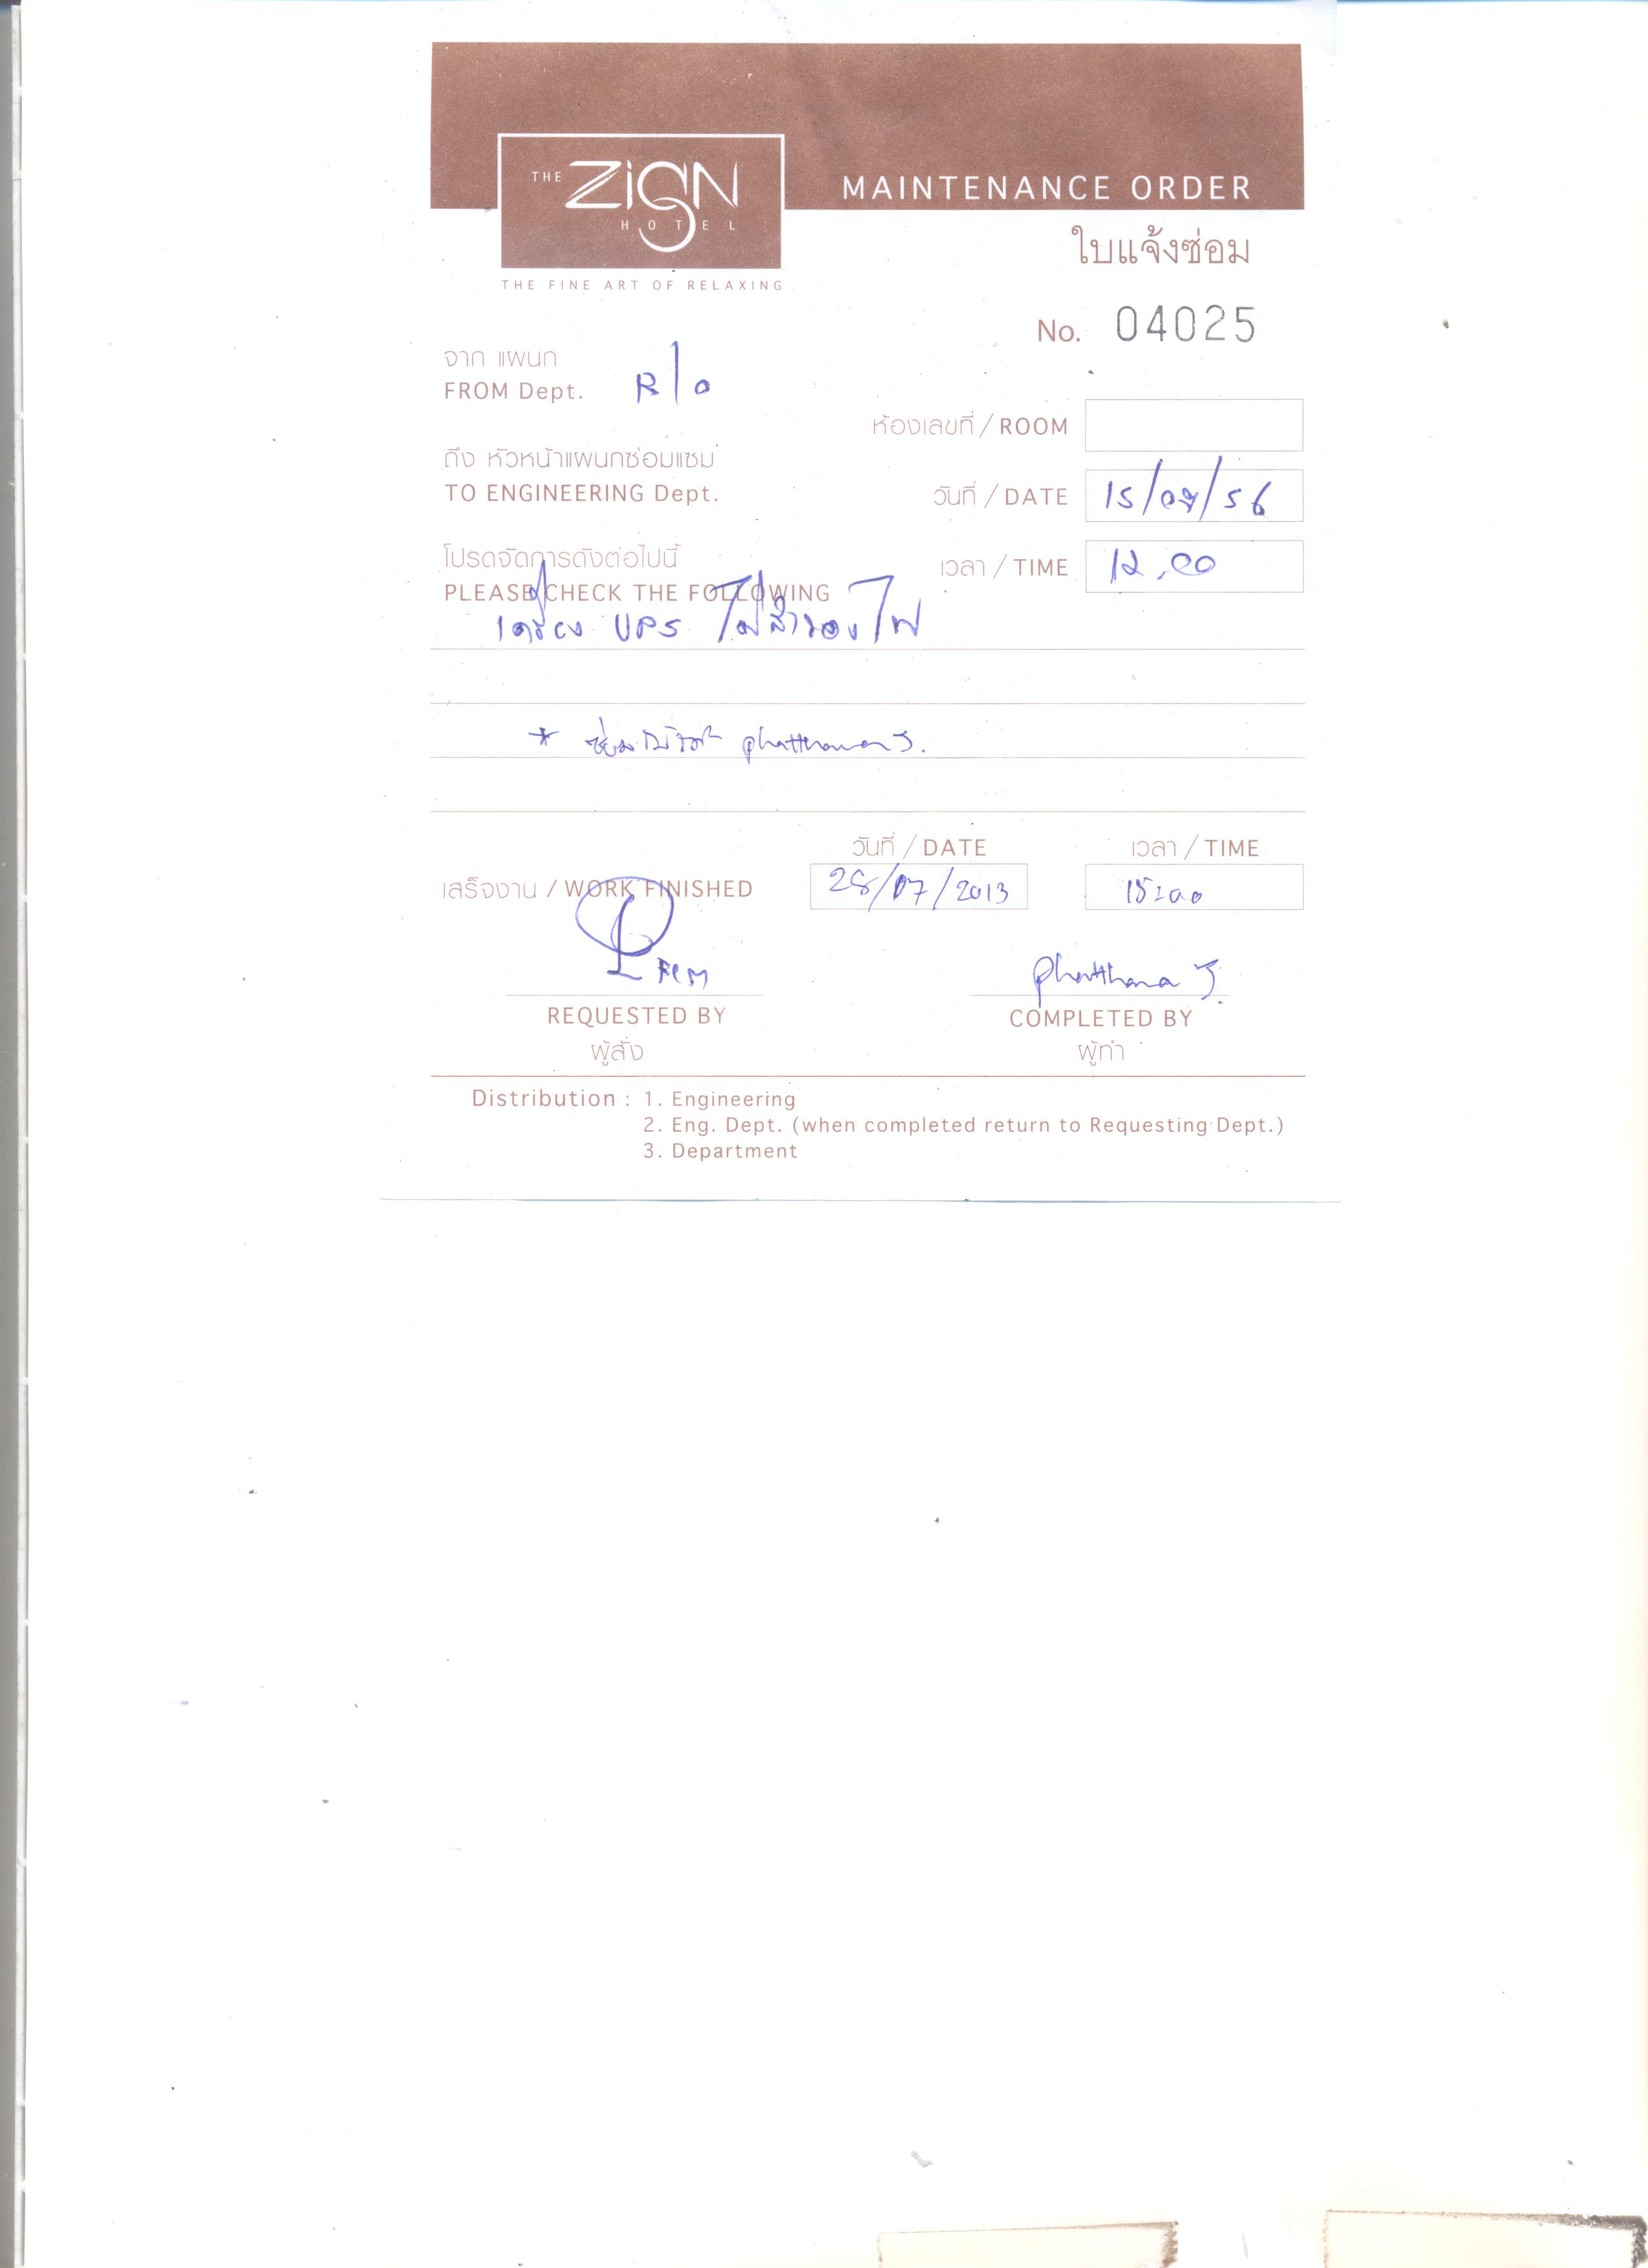 THE ZiGN
HOTEL
THE FINE ART OF RELAXING
MAINTENANCE ORDER
ใบแจ้งซ่อม
No. 04025
จาก แผนก
FROM Dept. R/o
ห้องเลขที่ / ROOM
ถึง หัวหน้าแผนกซ่อมแซม
TO ENGINEERING Dept.
วันที่ / DATE 15/07/56
โปรดจัดการดังต่อไปนี้
PLEASE CHECK THE FOLLOWING
เวลา / TIME 12.00
เครื่อง UPS ไม่สำรองไฟ
* ซ่อมไม่ได้
วันที่ / DATE เวลา / TIME
เสร็จงาน / WORK FINISHED 28/07/2013 15:00
Phatthana J.
REQUESTED BY COMPLETED BY
ผู้สั่ง ผู้ทำ
Distribution : 1. Engineering
2. Eng. Dept. (when completed return to Requesting Dept.)
3. Department